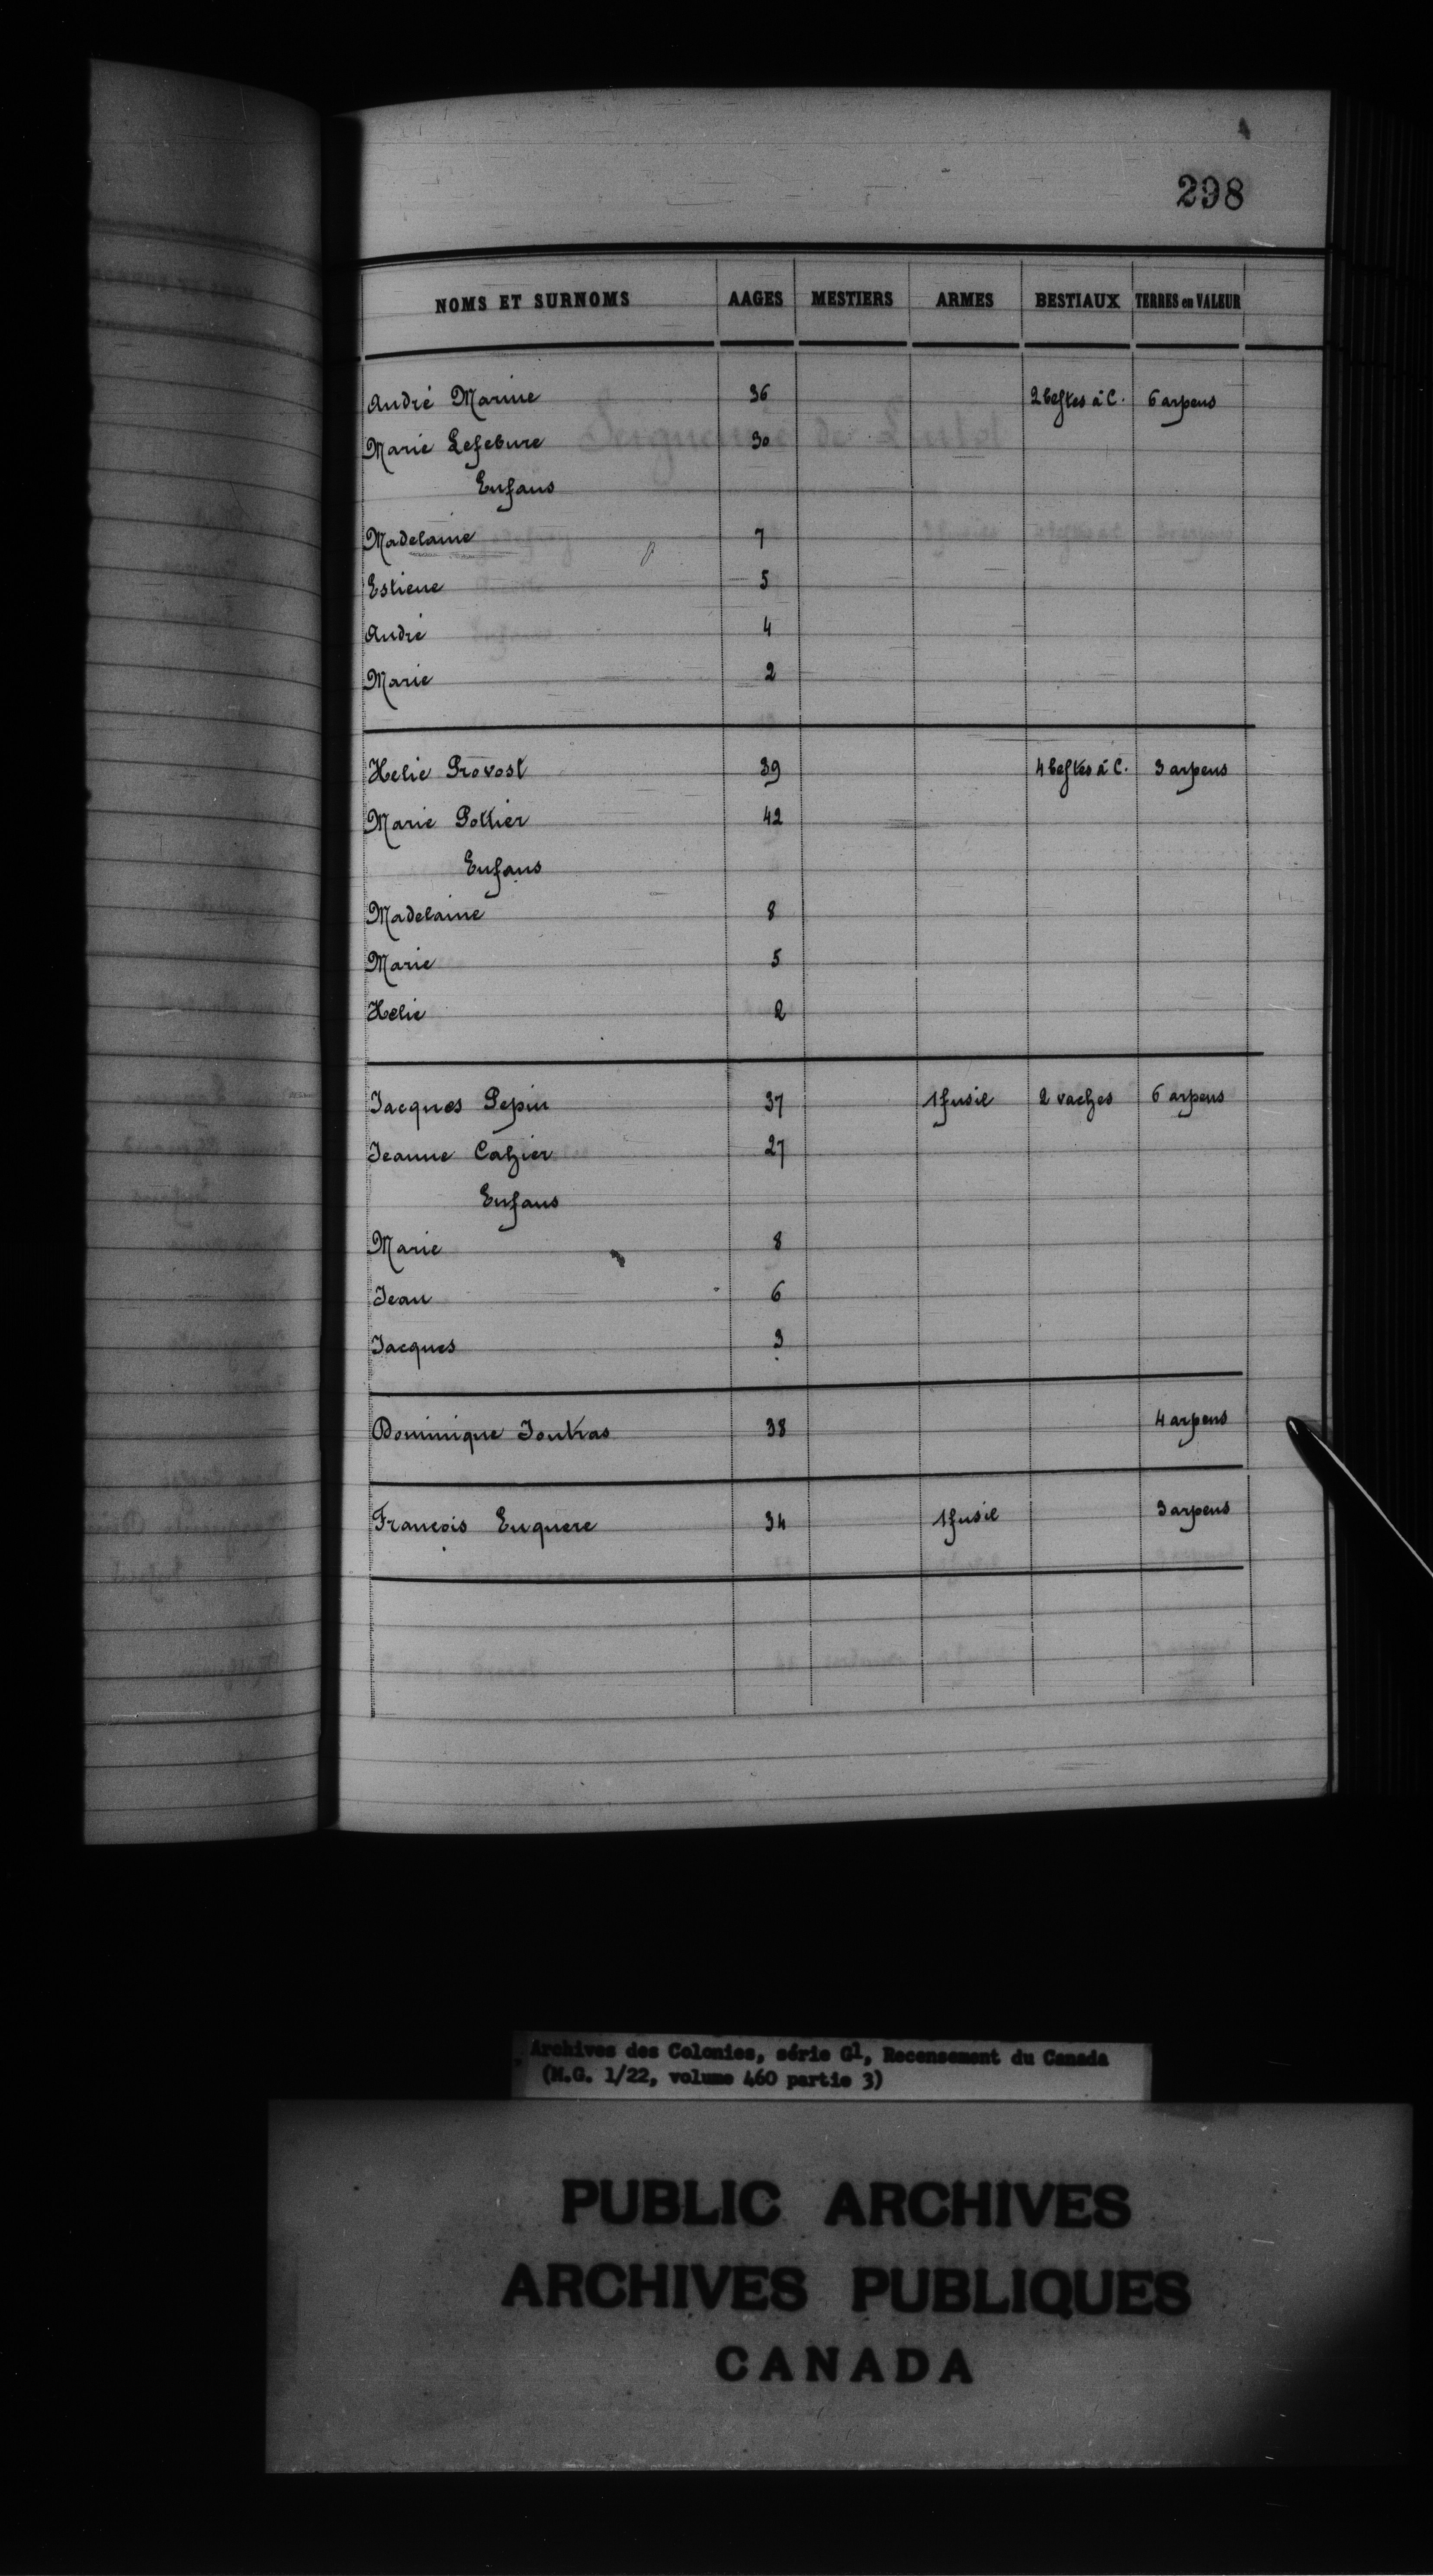 298
NOMS ET SURNOMS AAGES MESTIERS ARMES BESTIAUX TERRES en VALEUR
André Marine 36 2 bestes à C. 6 arpens
Marie Lefebure 30
Enfans
Madelaine 7
Estiene 5
André 4
Marie 2
Helie Provost 39 4 bestes à C. 3 arpens
Marie Pottier 42
Enfans
Madelaine 8
Marie 5
Helie 2
Jacques Pepin 37 1 fusil 2 vaches 6 arpens
Jeanne Cahier 27
Enfans
Marie 8
Jean 6
Jacques 3
Dominique Joutras 38 4 arpens
Francois Euquere 34 1 fusil 3 arpens
Archives des Colonies, série G1, Recensement du Canada
(M.G. 1/22, volume 460 partie 3)
PUBLIC ARCHIVES
ARCHIVES PUBLIQUES
CANADA